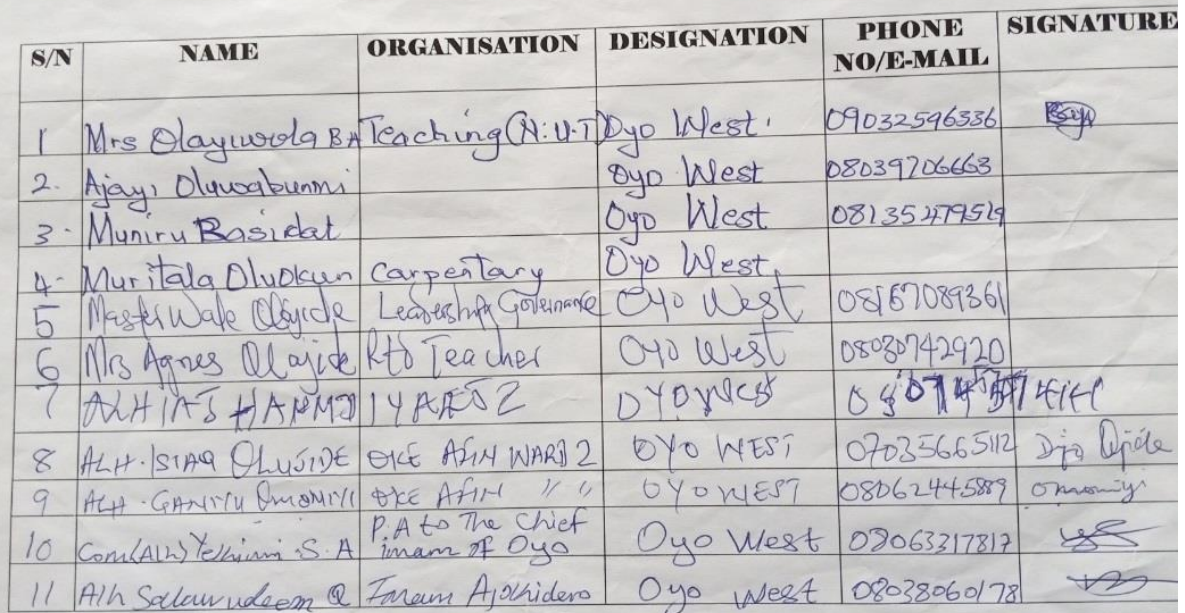 S/N NAME ORGANISATION DESIGNATION PHONE NO/E-MAIL SIGNATURE
1 Mrs Olayiwola BA Teaching (N.U.T) Oyo West 09032596336
2. Ajayi Oluwabunmi Oyo West 08039706663
3. Muniru Basidat Oyo West 08135479519
4. Muritala Oluokun Carpentary Oyo West
5 Master Wale Olajide Leadership Governance Oyo West 08167089361
6 Mrs Agnes Olajide Rtd Teacher Oyo West 08030742920
7 OYO West
8 ALH. ISIAQ OLUJIDE OKE AFIN WARD 2 OYO WEST 07035665112
9 ALH. GANIYU OMONIYI OKE AFIN " " OYO WEST 08062445889 Omoniyi
10 Com(Alh) S.A P.A to The Chief imam of Oyo Oyo West 08063317817
11 Alh Salawudeen Q Imam Oyo West 08038060178